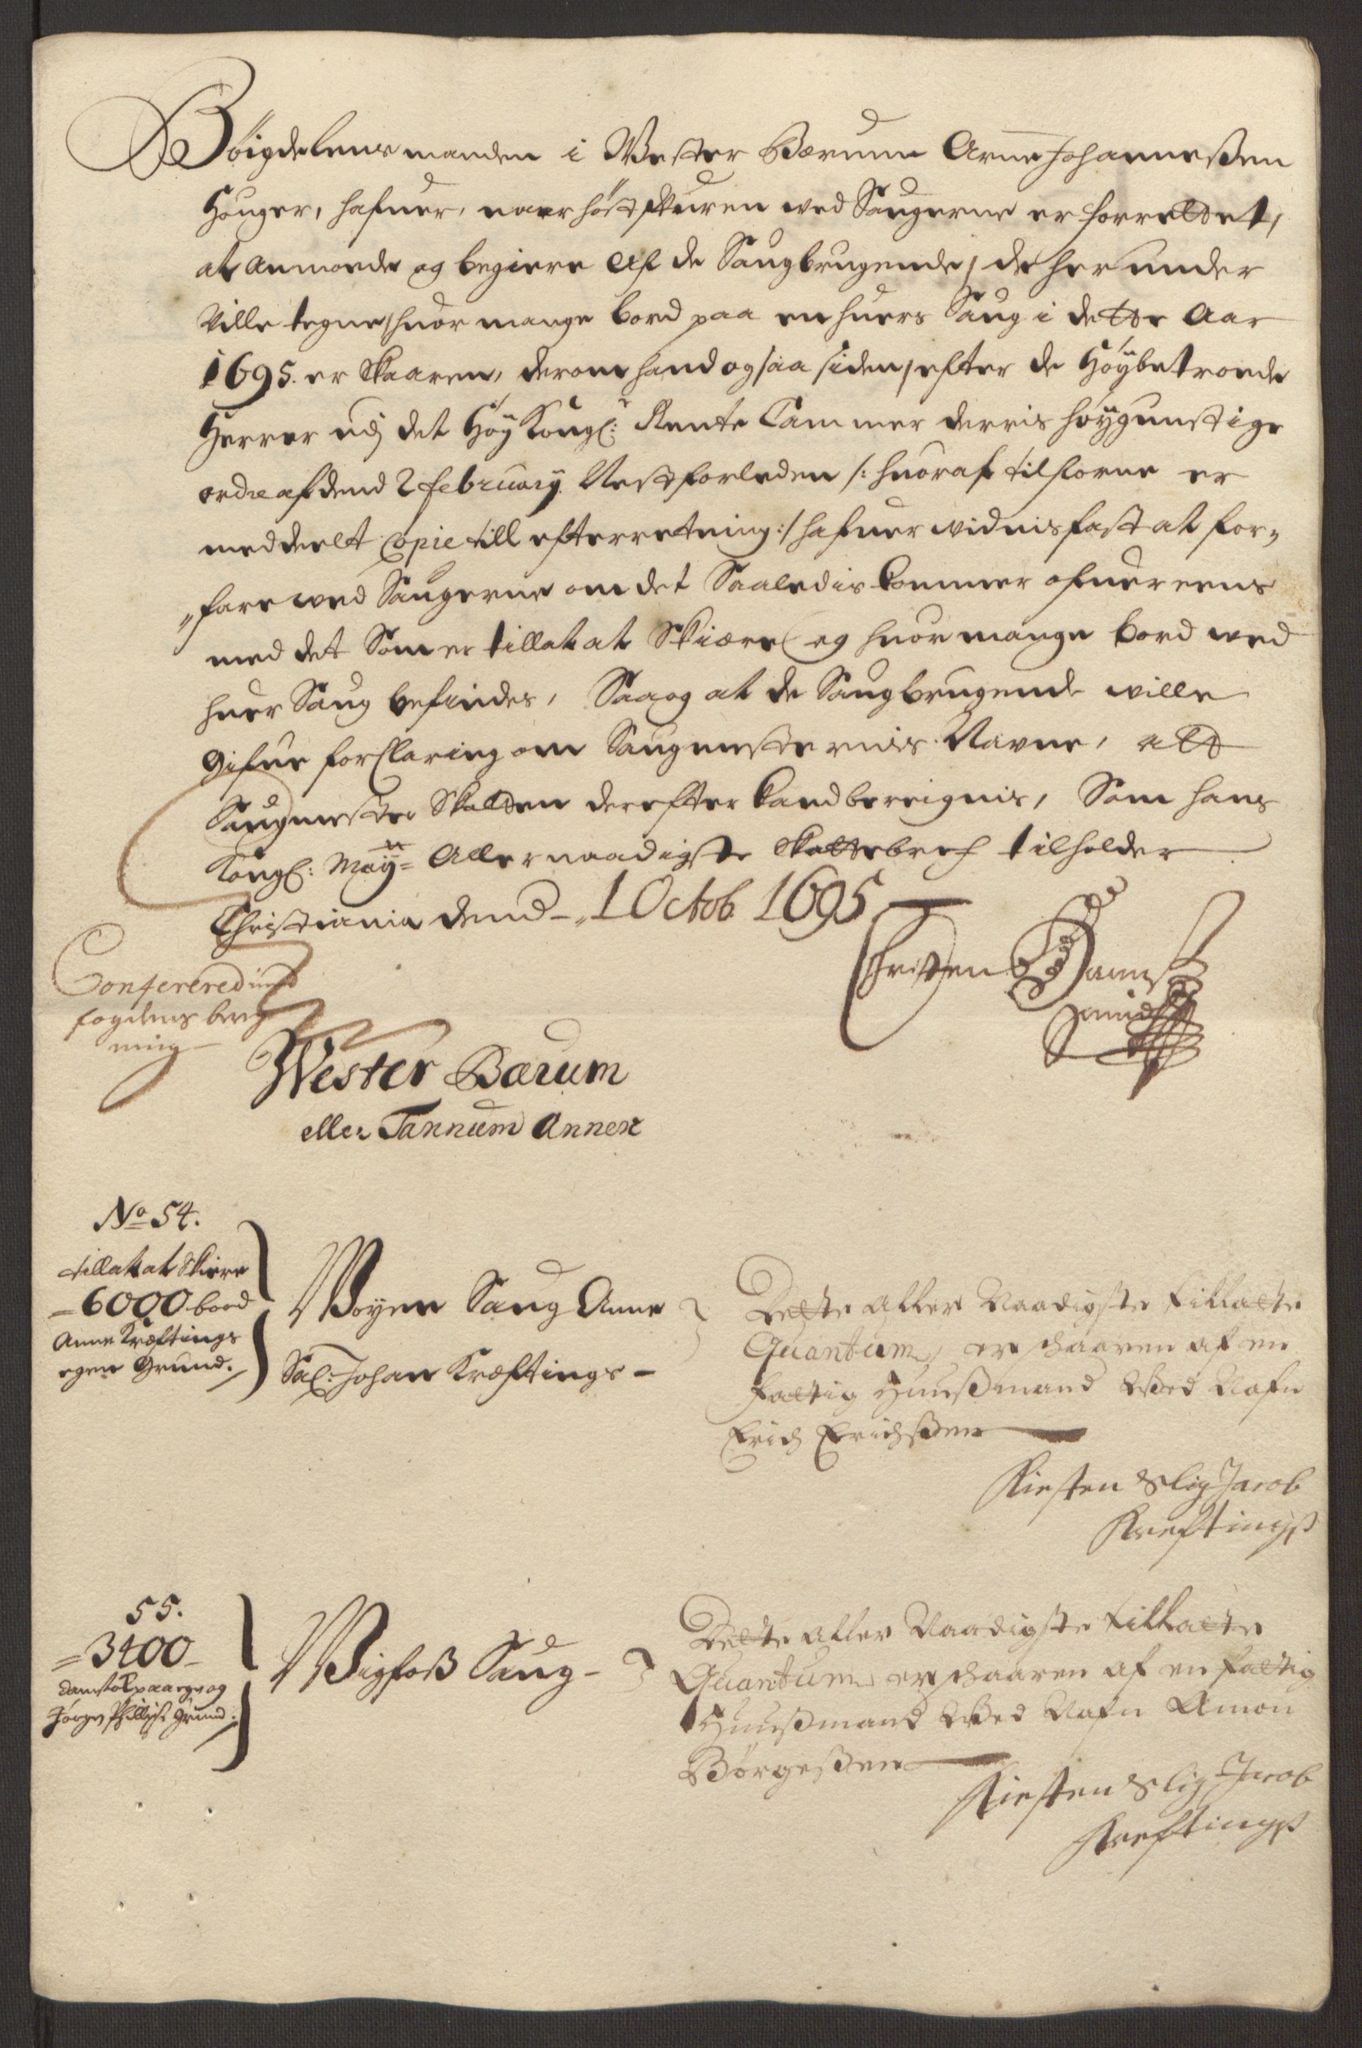 Böigdelensmanden i Wester Bærum Arne Johannesen
Houger, hafuer, naar höstskuren wed Saugerne er forrettet,
at anmode og begiere af de Saugbrugende, de her under
Ville tegne, huor mange bord paa en huers Saug i dette Aar
1695. er skaaren, derom hand ogsaa siden, efter de Höybetroede
Herrer udj det Höy Kongl: Rente Cammer derris höygunstige
ordre af dend 2 february Nestforleden /: huoraf tilforne er
meddeelt Copie till efterretning :/ hafuer widnisfast at for-
„fare wed Saugerne om det Saaledis kommer ofuereens
med det Som er tillat at Skiære, og huor mange bord wed
huer Saug befindes, Saa og at de Saugbrugende wille
Gifue forClaring om Saugmesternis Navne, att
Saugmester Skatten derefter kand beregnis, Som hans
Kongl: May:tt Allernaadigste Skattebref tilholder
Christiania dend 1 Octob 1695
Christen
Conferered med
fogdens bereg
ning
Wester Bærum
eller Tannum Annex
No 54.
tillat at Skiere
6000 bord
Anne Kræftings
egen Grund.
Woyen Saug Anne
Sal: Johan Kræftings -
Dette Aller Naadigste Tillatte
Quantum, er skaaren af en
fattig Huussmand Wed Nafn
Erich Erichssen
Kirsten Slig Jacob
Kreftings
55.
3400
damstok paa egr og
Jörgen Phillips: Grund:
Wigfoss Saug -
Dette Aller Naadigste Tillatte
Quantum, er skaaren af en fattig
Huussmand Wed Nafn Amon
Börgessen
Kirsten Slig Jacob
Kreftings